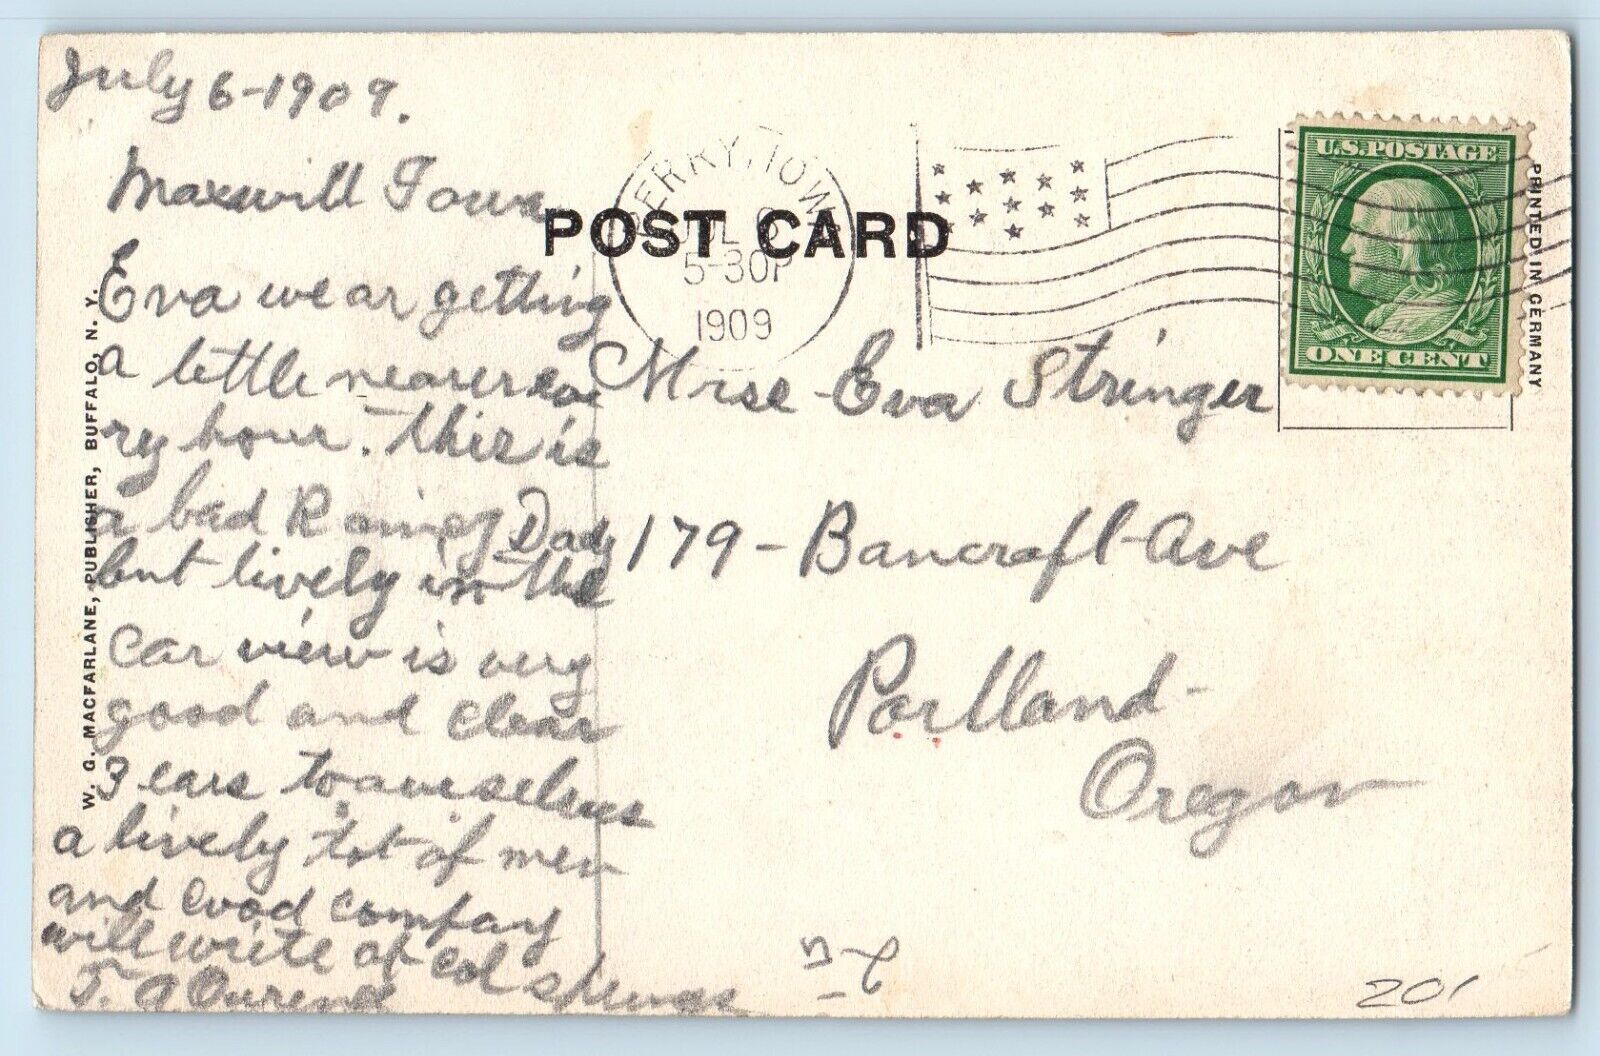 July 6-1909.
Maxwill Iowa
Eva we ar getting
a little nearer eve
ry hour. this is
a bad Rainey Dady
but lively in the
car view is very
good and clear
3 cars to ourselves
a lively lot of men
and good company
will write at Col Springs
T. A
POST CARD
PERRY, IOWA
JUL 6
5-30P
1909
U.S. POSTAGE
ONE CENT
PRINTED IN GERMANY
Mrse Eva Stringer
179 - Bancroft Ave
Portland-
Oregon
W. G. MACFARLANE, PUBLISHER, BUFFALO, N. Y.
201